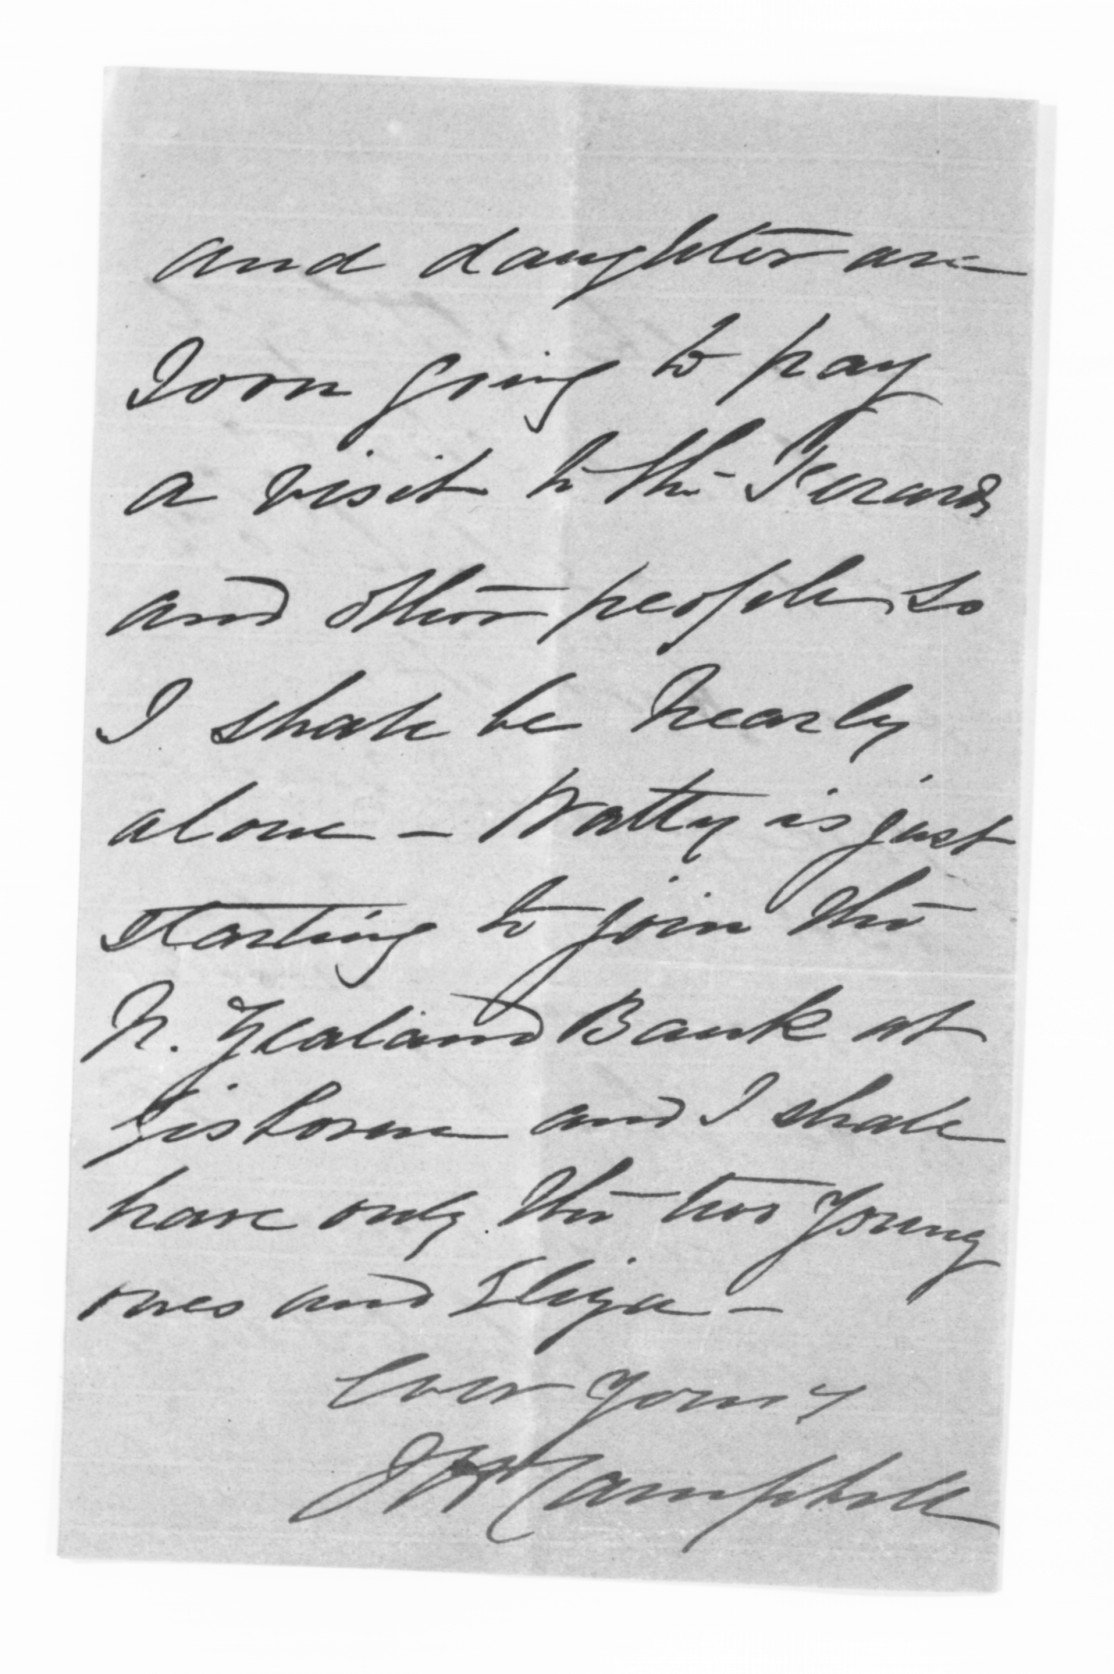 and daughter are
soon going to pay
a visit to the
and other people so
I shall be nearly
alone – Watty is just
starting to join the
N. Zealand Bank at
Gisborne and I shall
have only the two young
ones and Eliza –
Ever yours
Campbell